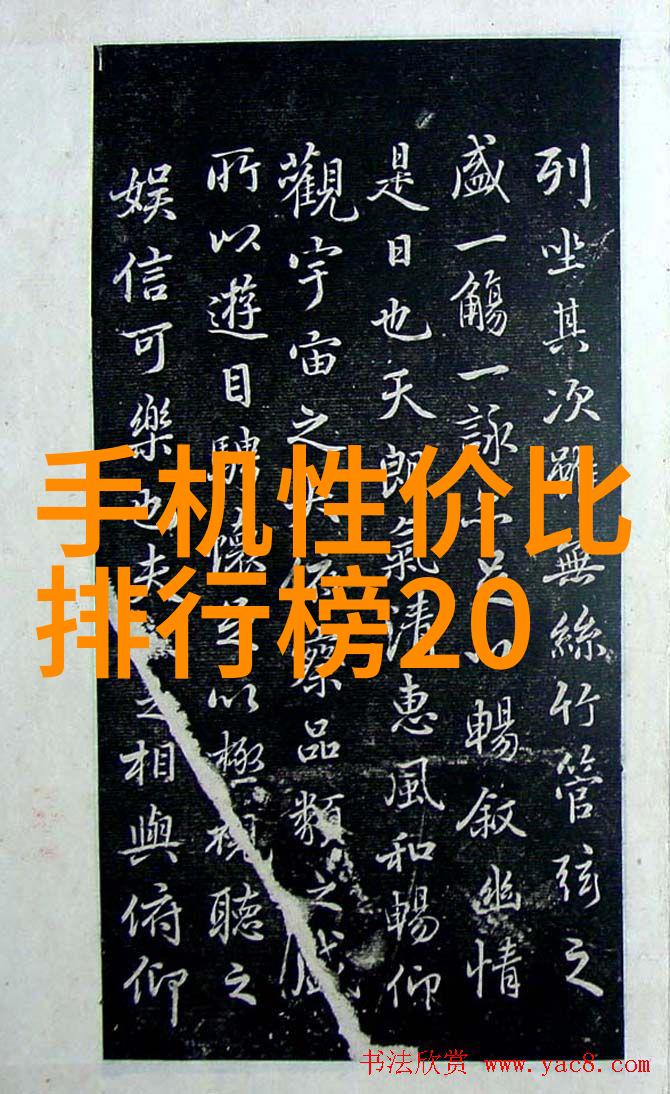 列坐其次雖無絲竹管弦之
盛一觴一詠亦足以暢叙幽情
是日也天朗氣清惠風和暢仰
觀宇宙之大俯察品類之盛
所以遊目騁懷足以極視聽之
娛信可樂也夫之相與俯仰
手机性价比
排行榜20
书法欣赏 www.yac8.com